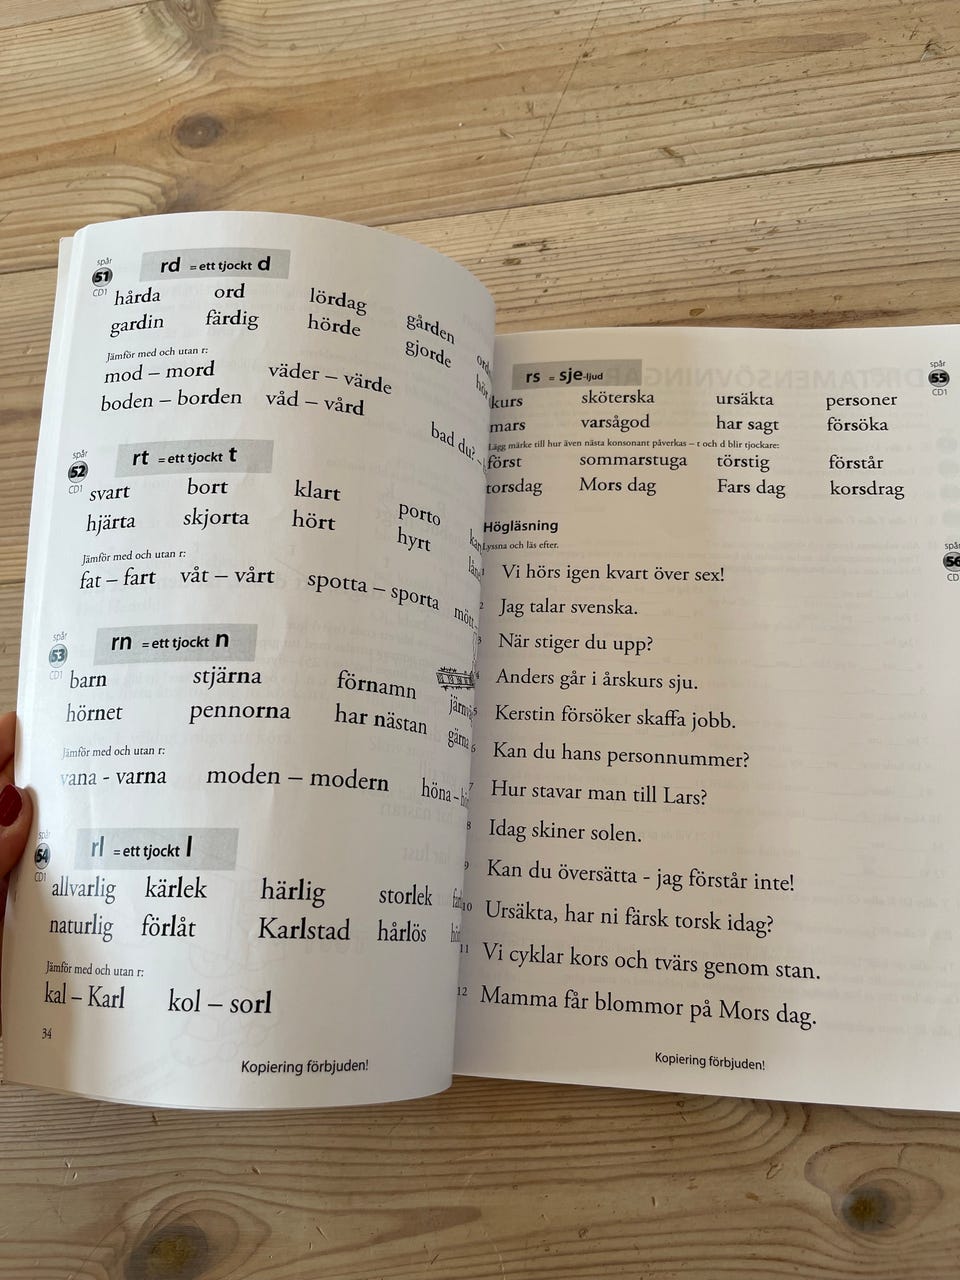 spår
51
CD1
rd = ett tjockt d
hårda ord lördag gården
gardin färdig hörde gjorde
Jämför med och utan r:
mod – mord väder – värde
boden – borden våd – vård
bad du? –
spår
52
CD1
rt = ett tjockt t
svart bort klart porto
hjärta skjorta hört hyrt
Jämför med och utan r:
fat – fart våt – vårt spotta – sporta
spår
53
CD1
rn = ett tjockt n
barn stjärna förnamn
hörnet pennorna har nästan gärna
Jämför med och utan r:
vana - varna moden – modern höna –
spår
54
CD1
rl = ett tjockt l
allvarlig kärlek härlig storlek
naturlig förlåt Karlstad hårlös
Jämför med och utan r:
kal – Karl kol – sorl
34
Kopiering förbjuden!
spår
55
CD1
rs = sje-ljud
kurs sköterska ursäkta personer
mars varsågod har sagt försöka
Lägg märke till hur även nästa konsonant påverkas – t och d blir tjockare:
först sommarstuga törstig förstår
torsdag Mors dag Fars dag korsdrag
Högläsning
Lyssna och läs efter.
spår
56
1 Vi hörs igen kvart över sex!
2 Jag talar svenska.
3 När stiger du upp?
4 Anders går i årskurs sju.
5 Kerstin försöker skaffa jobb.
6 Kan du hans personnummer?
7 Hur stavar man till Lars?
8 Idag skiner solen.
9 Kan du översätta - jag förstår inte!
10 Ursäkta, har ni färsk torsk idag?
11 Vi cyklar kors och tvärs genom stan.
12 Mamma får blommor på Mors dag.
Kopiering förbjuden!